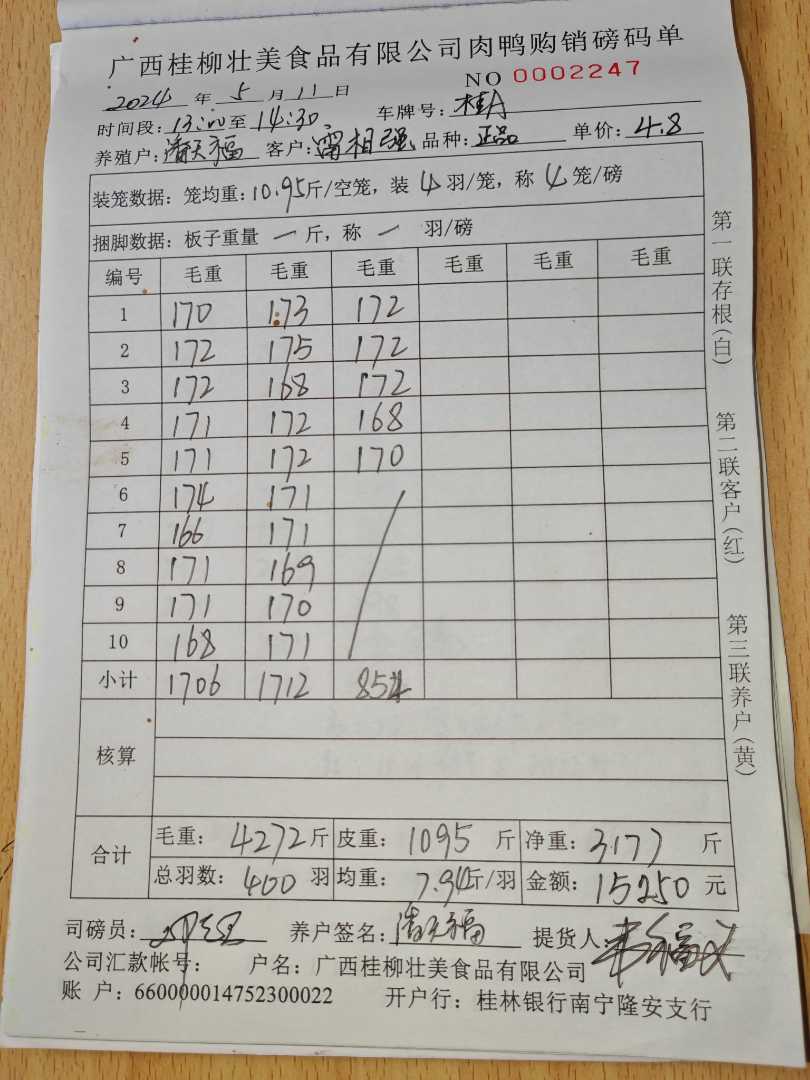 广西桂柳壮美食品有限公司肉鸭购销磅码单
NO 0002247
2024 年 5 月 11 日
时间段：13:00至14:30 车牌号：桂A
养殖户：潘天福 客户：雷相强 品种：正品 单价：4.8
装笼数据：笼均重：10.95斤/空笼，装 4 羽/笼，称 4 笼/磅
捆脚数据：板子重量 一 斤，称 一 羽/磅
编号 毛重 毛重 毛重 毛重 毛重 毛重
1 170 173 172
2 172 175 172
3 172 168 172
4 171 172 168
5 171 172 170
6 174 171
7 166 171
8 171 169
9 171 170
10 168 171
小计 1706 1712 854
核算
合计 毛重：4272斤 皮重：1095 斤 净重：3177 斤
总羽数：400 羽 均重：7.94斤/羽 金额：15250 元
司磅员： 养户签名：潘天福 提货人：
公司汇款帐号： 户名：广西桂柳壮美食品有限公司
账 户：660000014752300022 开户行：桂林银行南宁隆安支行
第一联存根(白)
第二联客户(红)
第三联养户(黄)